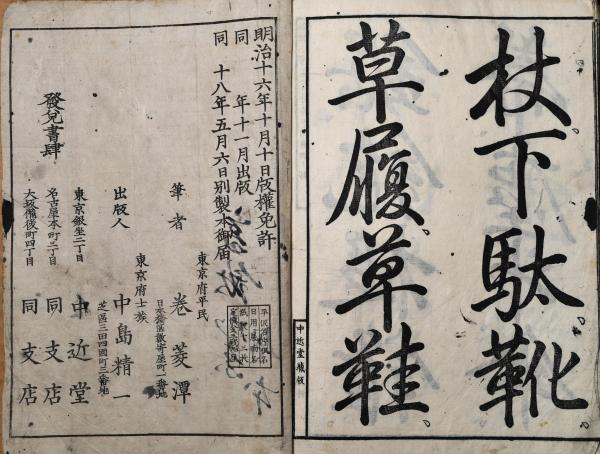 杖下駄靴。
草履草鞋。
中近堂蔵版
明治十六年十月十日版權免許
同　年十一月出版
同　十八年五月六日別製本御届
東京府平民
筆者　卷菱潭
東京府士族
出版人　中島精一
芝區三田四國町二番地
發兌書肆
東京銀坐二丁目　中近堂
名古屋本町二丁目　同支店
大坂備後町四丁目　同支店